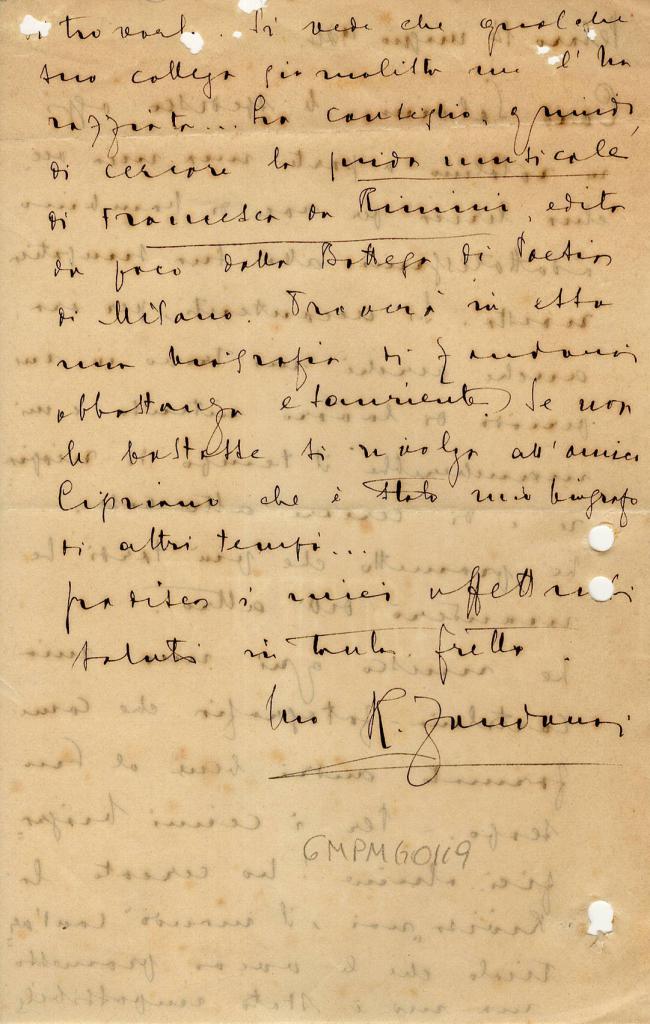 trovarla. Si vede che qualche
suo collega giornalista me l'ha
razziata... La consiglio, quindi,
di cercare la guida musicale
di Francesca da Rimini, edita
da poco dalla Bottega di Poesia
di Milano. Troverà in essa
una biografia di Zandonai
abbastanza esauriente. Se non
le bastasse si rivolga all'amico
Cipriano che è stato mio biografo
di altri tempi...
Gradisca i miei affettuosi
saluti in tanta fretta.
Suo R. Zandonai
GMPMGO119